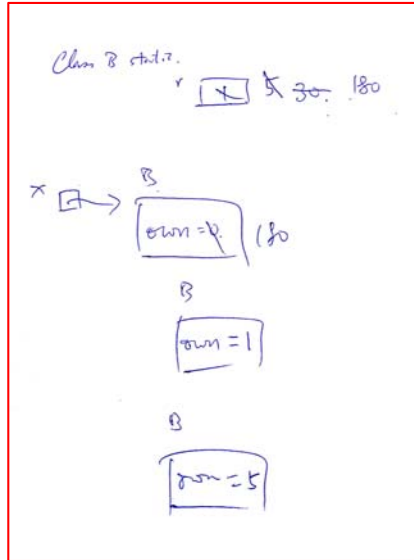 Class B static.
r x 5 30. 180
x B
own = 0 180
B
own = 1
B
own = 5